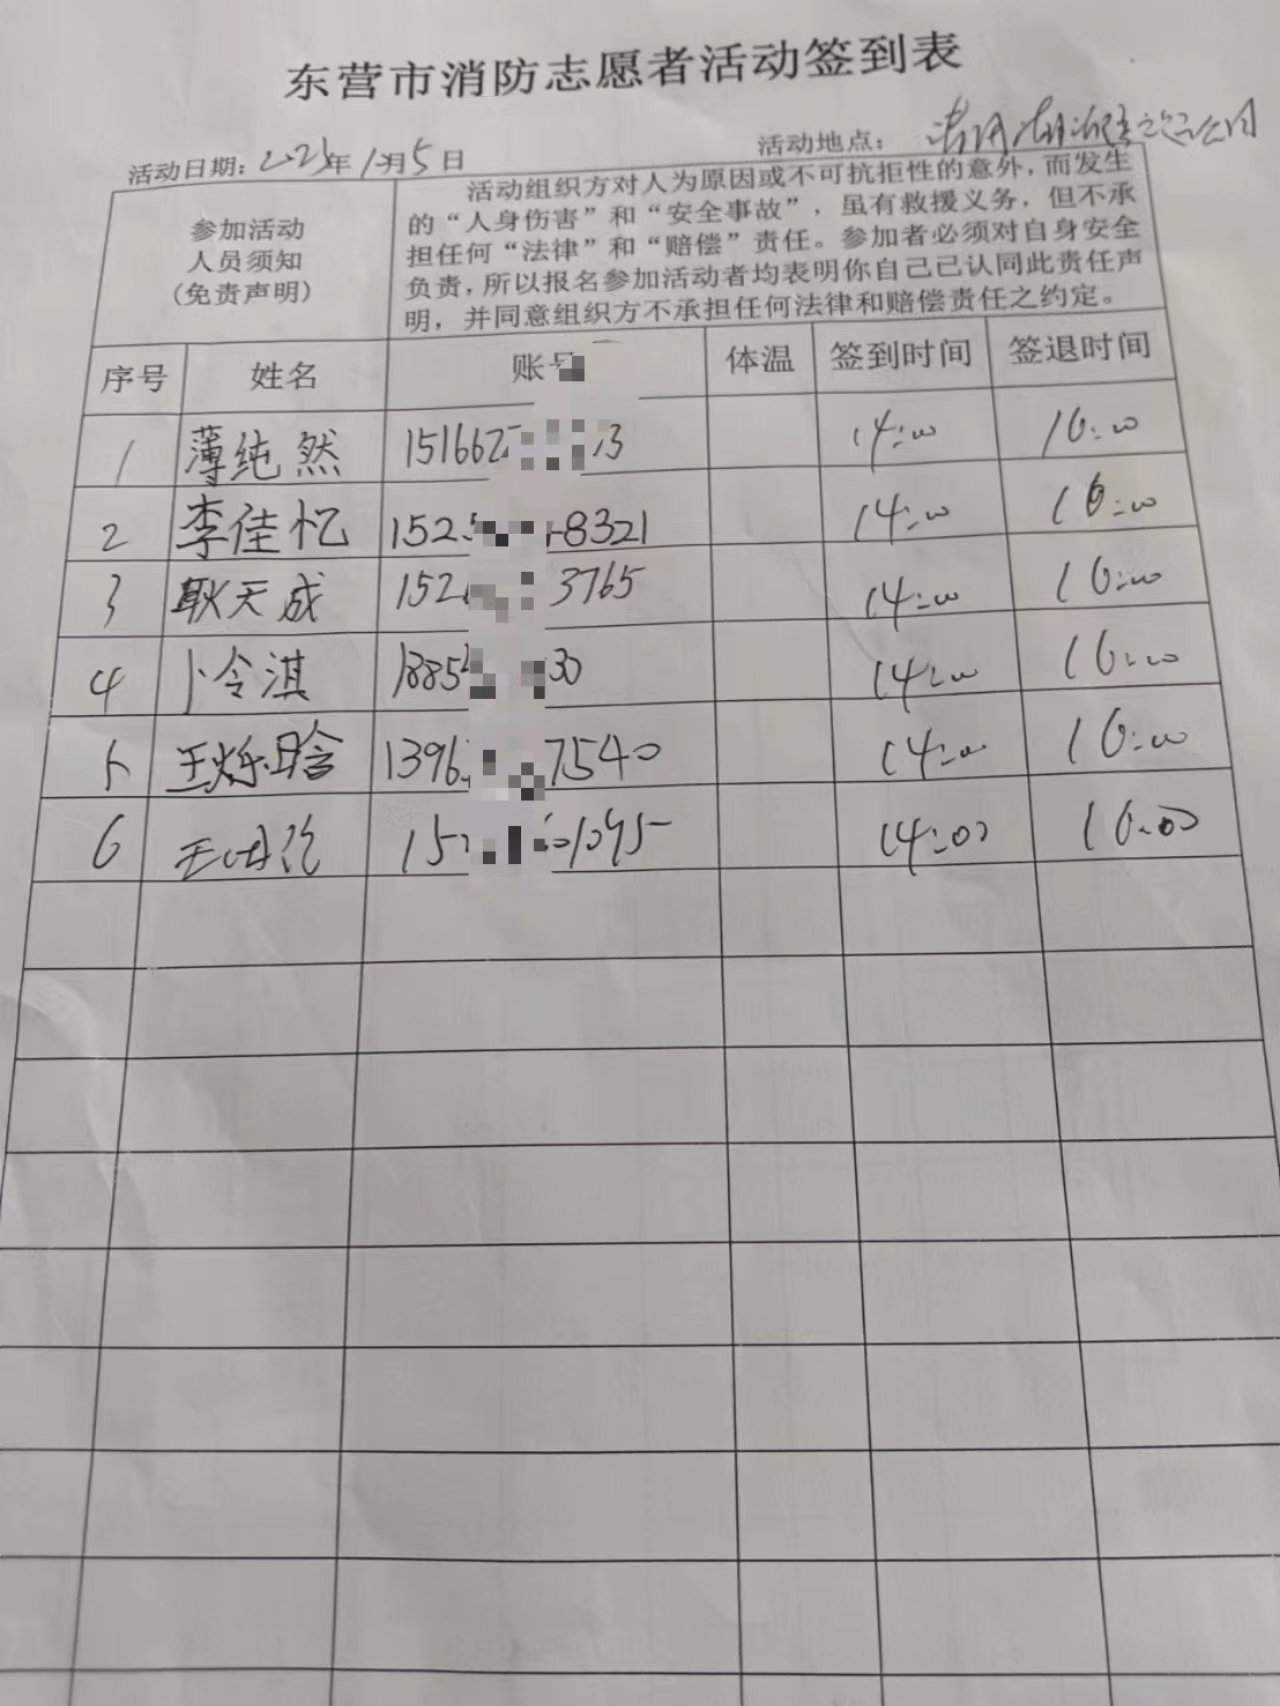 东营市消防志愿者活动签到表
活动日期：2023年 月5日 活动地点： 公司
参加活动
人员须知
(免责声明)
活动组织方对人为原因或不可抗拒性的意外，而发生
的“人身伤害”和“安全事故”，虽有救援义务，但不承
担任何“法律”和“赔偿”责任。参加者必须对自身安全
负责，所以报名参加活动者均表明你自己已认同此责任声
明，并同意组织方不承担任何法律和赔偿责任之约定。
序号 姓名 账号 体温 签到时间 签退时间
1 薄纯然 151662 13 14:00 16:00
2 李佳忆 152 8321 14:00 16:00
3 耿天成 152 3765 14:00 16:00
4 卜令淇 1885 30 14:00 16:00
5 王烁晗 1396 7540 14:00 16:00
6 王 15 1095 14:00 16:00